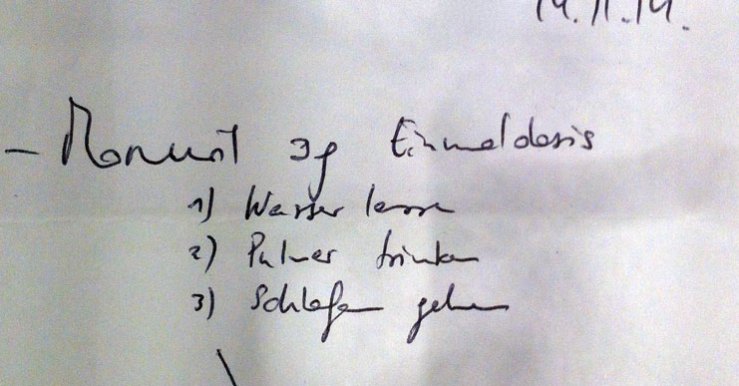 14.11.14.
– Monuril 3g Einmaldosis
1) Wasser lassen
2) Pulver trinken
3) Schlafen gehen